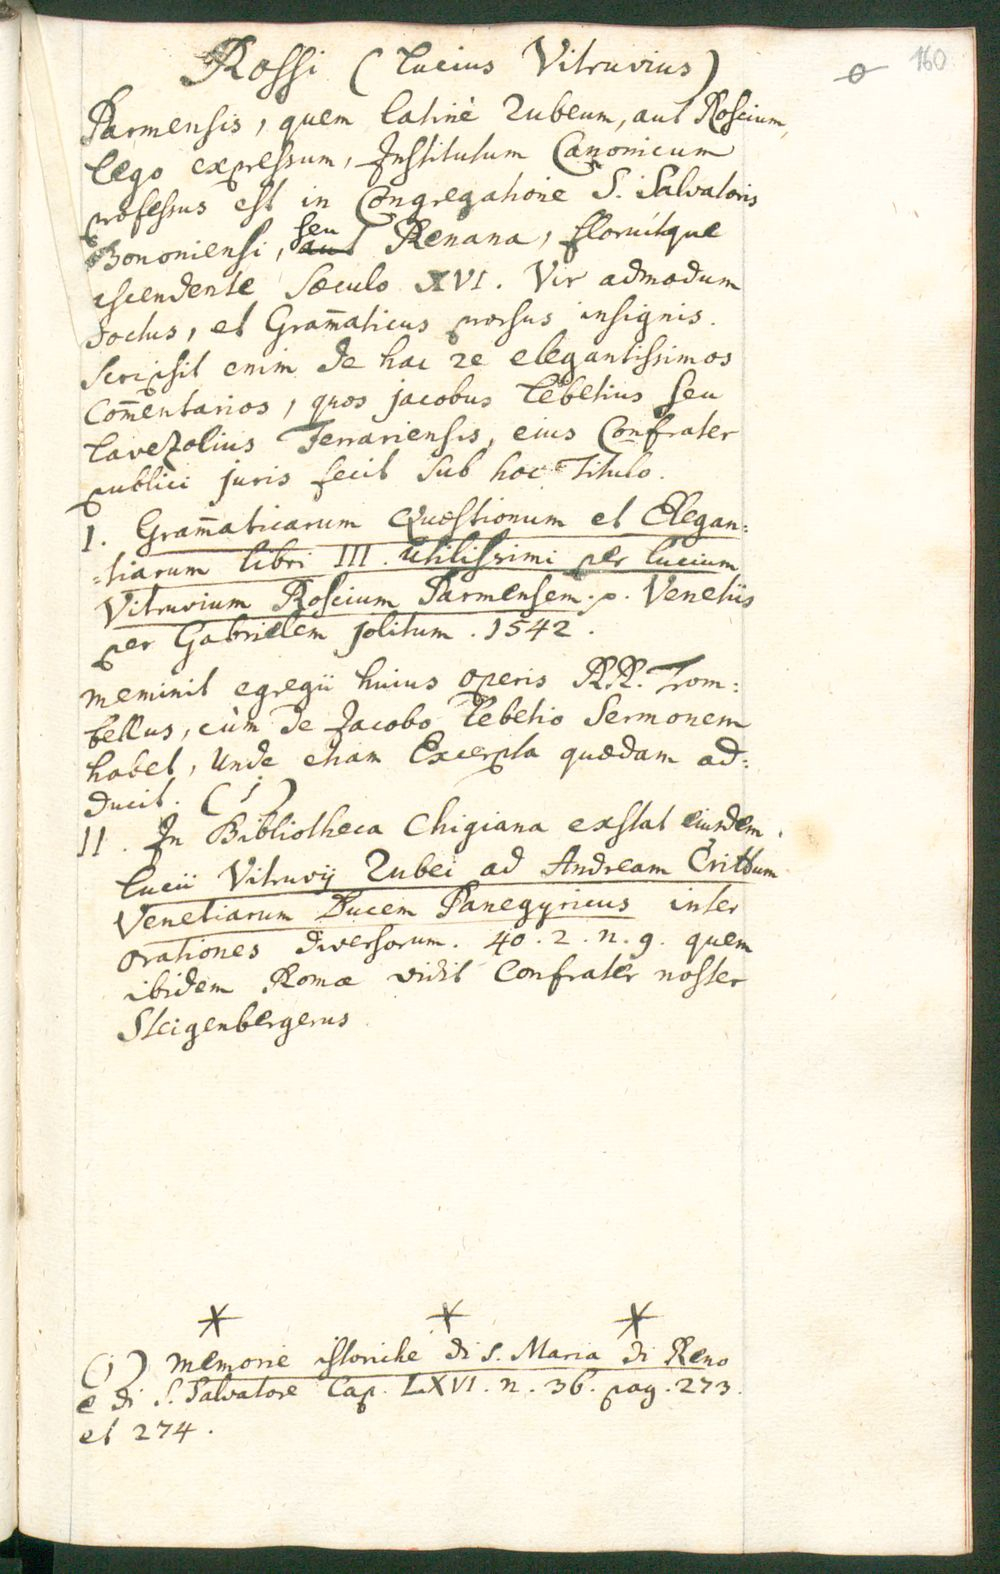 160
Rossi (Lucius Vitruvius)
Parmensis, quem latinè Rubeum, aut Roscium
lego expressum, Institutum Canonicum
professus est in Congregatione S. Salvatoris
Bononiensi, seu aut Renana, floruitque
escendente Sæculo XVI. Vir admodum
doctus, et Gram̄aticus prorsus insignis.
Scripsit enim de hac re elegantissimos
Com̄entarios, quos jacobus Tebetius seu
Tavezolius Ferrariensis, eius Confrater
publici juris fecit sub hoc Titulo.
I. Gram̄aticarum Quæstionum et Elegan:
:tiarum libri III. utilissimi per Lucium
Vitruvium Roscium Parmensem. p. Venetiis
per Gabrielem jolitum. 1542.
meminit egregii huius operis R.R. Trom:
bellus, cùm de Jacobo Tebetio Sermonem
habet, Unde etiam Excerpta quædam ad:
ducit. (1)
II. In Bibliotheca Chigiana exstat eiusdem
Lucii Vitruvij Rubei ad Andream Crittum
Venetiarum Ducem Panegyricus inter
orationes diversorum. 40. 2. n. 9. quem
ibidem Romæ vidit Confrater noster
Steigenbergerus
* * *
(1) Memorie istoriche di S. Maria di Reno
e di S. Salvatore Cap. LXVI. n. 36. pag. 273.
et 274.